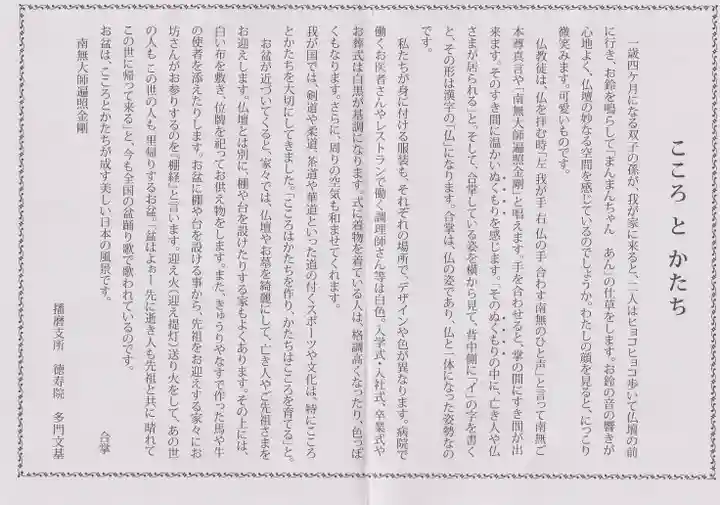 こころ と かたち
一歳四ケ月になる双子の孫が、我が家に来ると、二人はヒョコヒョコ歩いて仏壇の前
に行き、お鈴を鳴らして「まんまんちゃん　あん」の仕草をします。お鈴の音の響きが
心地よく、仏壇の妙なる空間を感じているのでしょうか。わたしの顔を見ると、にっこり
微笑みます。可愛いものです。
仏教徒は、仏を拝む時「左 我が手 右 仏の手 合わす南無のひと声」と言って南無ご
本尊真言や「南無大師遍照金剛」と唱えます。手を合わせると、掌の間にすき間が出
来ます。そのすき間に温かいぬくもりを感じます。「そのぬくもりの中に、亡き人や仏
さまが居られる」と。そして、合掌している姿を横から見て、背中側に「イ」の字を書く
と、その形は漢字の「仏」になります。合掌は、仏の姿であり、仏と一体になった姿勢なの
です。
私たちが身に付ける服装も、それぞれの場所で、デザインや色が異なります。病院で
働くお医者さんやレストランで働く調理師さん等は白色。入学式・入社式、卒業式や
お葬式は白黒が基調になります。式に着物を着ている人は、格調高くなったり、色っぽ
くもなります。さらに、周りの空気も和ませてくれます。
我が国では、剣道や柔道、茶道や華道といった道の付くスポーツや文化は、特にこころ
とかたちを大切にしてきました。「こころはかたちを作り、かたちはこころを育てる」と。
お盆が近づいてくると、家々では、仏壇やお墓を綺麗にして、亡き人やご先祖さまを
お迎えします。仏壇とは別に、棚や台を設けたりする家もよくあります。その上には、
白い布を敷き、位牌を祀ってお供え物をします。また、きゅうりやなすで作った馬や牛
の使者を添えたりします。お盆に棚や台を設ける事から、先祖をお迎えする家々にお
坊さんがお参りするのを『棚経』と言います。迎え火(迎え提灯)送り火をして、あの世
の人もこの世の人も、里帰りするお盆。「盆はよぉー 先に逝き人も先祖と共に 晴れて
この世に帰って来る」と、今も全国の盆踊り歌で歌われているのです。
お盆は、こころとかたちが成す美しい日本の風景です。
南無大師遍照金剛
合掌
播磨支所　徳寿院　多門文基